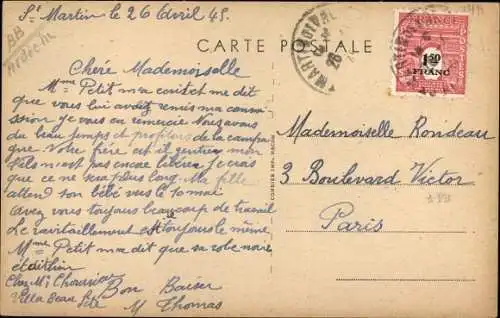 St Martin le 26 Avril 45.
BB
Ardèche
CARTE POSTALE
FRANCE
POSTES
1F50
FRANC
Chère Mademoiselle
Mme Petit m'a écrit et me dit
que vous lui avez remis ma commis
sion je vous en remercie vous avez
du beau temps et profitons de la campagne
que Votre frère est il mon
fils n'est pas encore libre je crois
que ce ne sera plus long. Ma fille
attend son bébé vers le 10 mai
Avez vous toujours beaucoup de travail
Le ravitaillement est toujours le même
Mme Petit m'a dit que sa robe noire
était bien
Chez Mr
Villa Beau Site
Bon Baiser
M Thomas
Mademoiselle Rondeau
3 Boulevard Victor
Paris